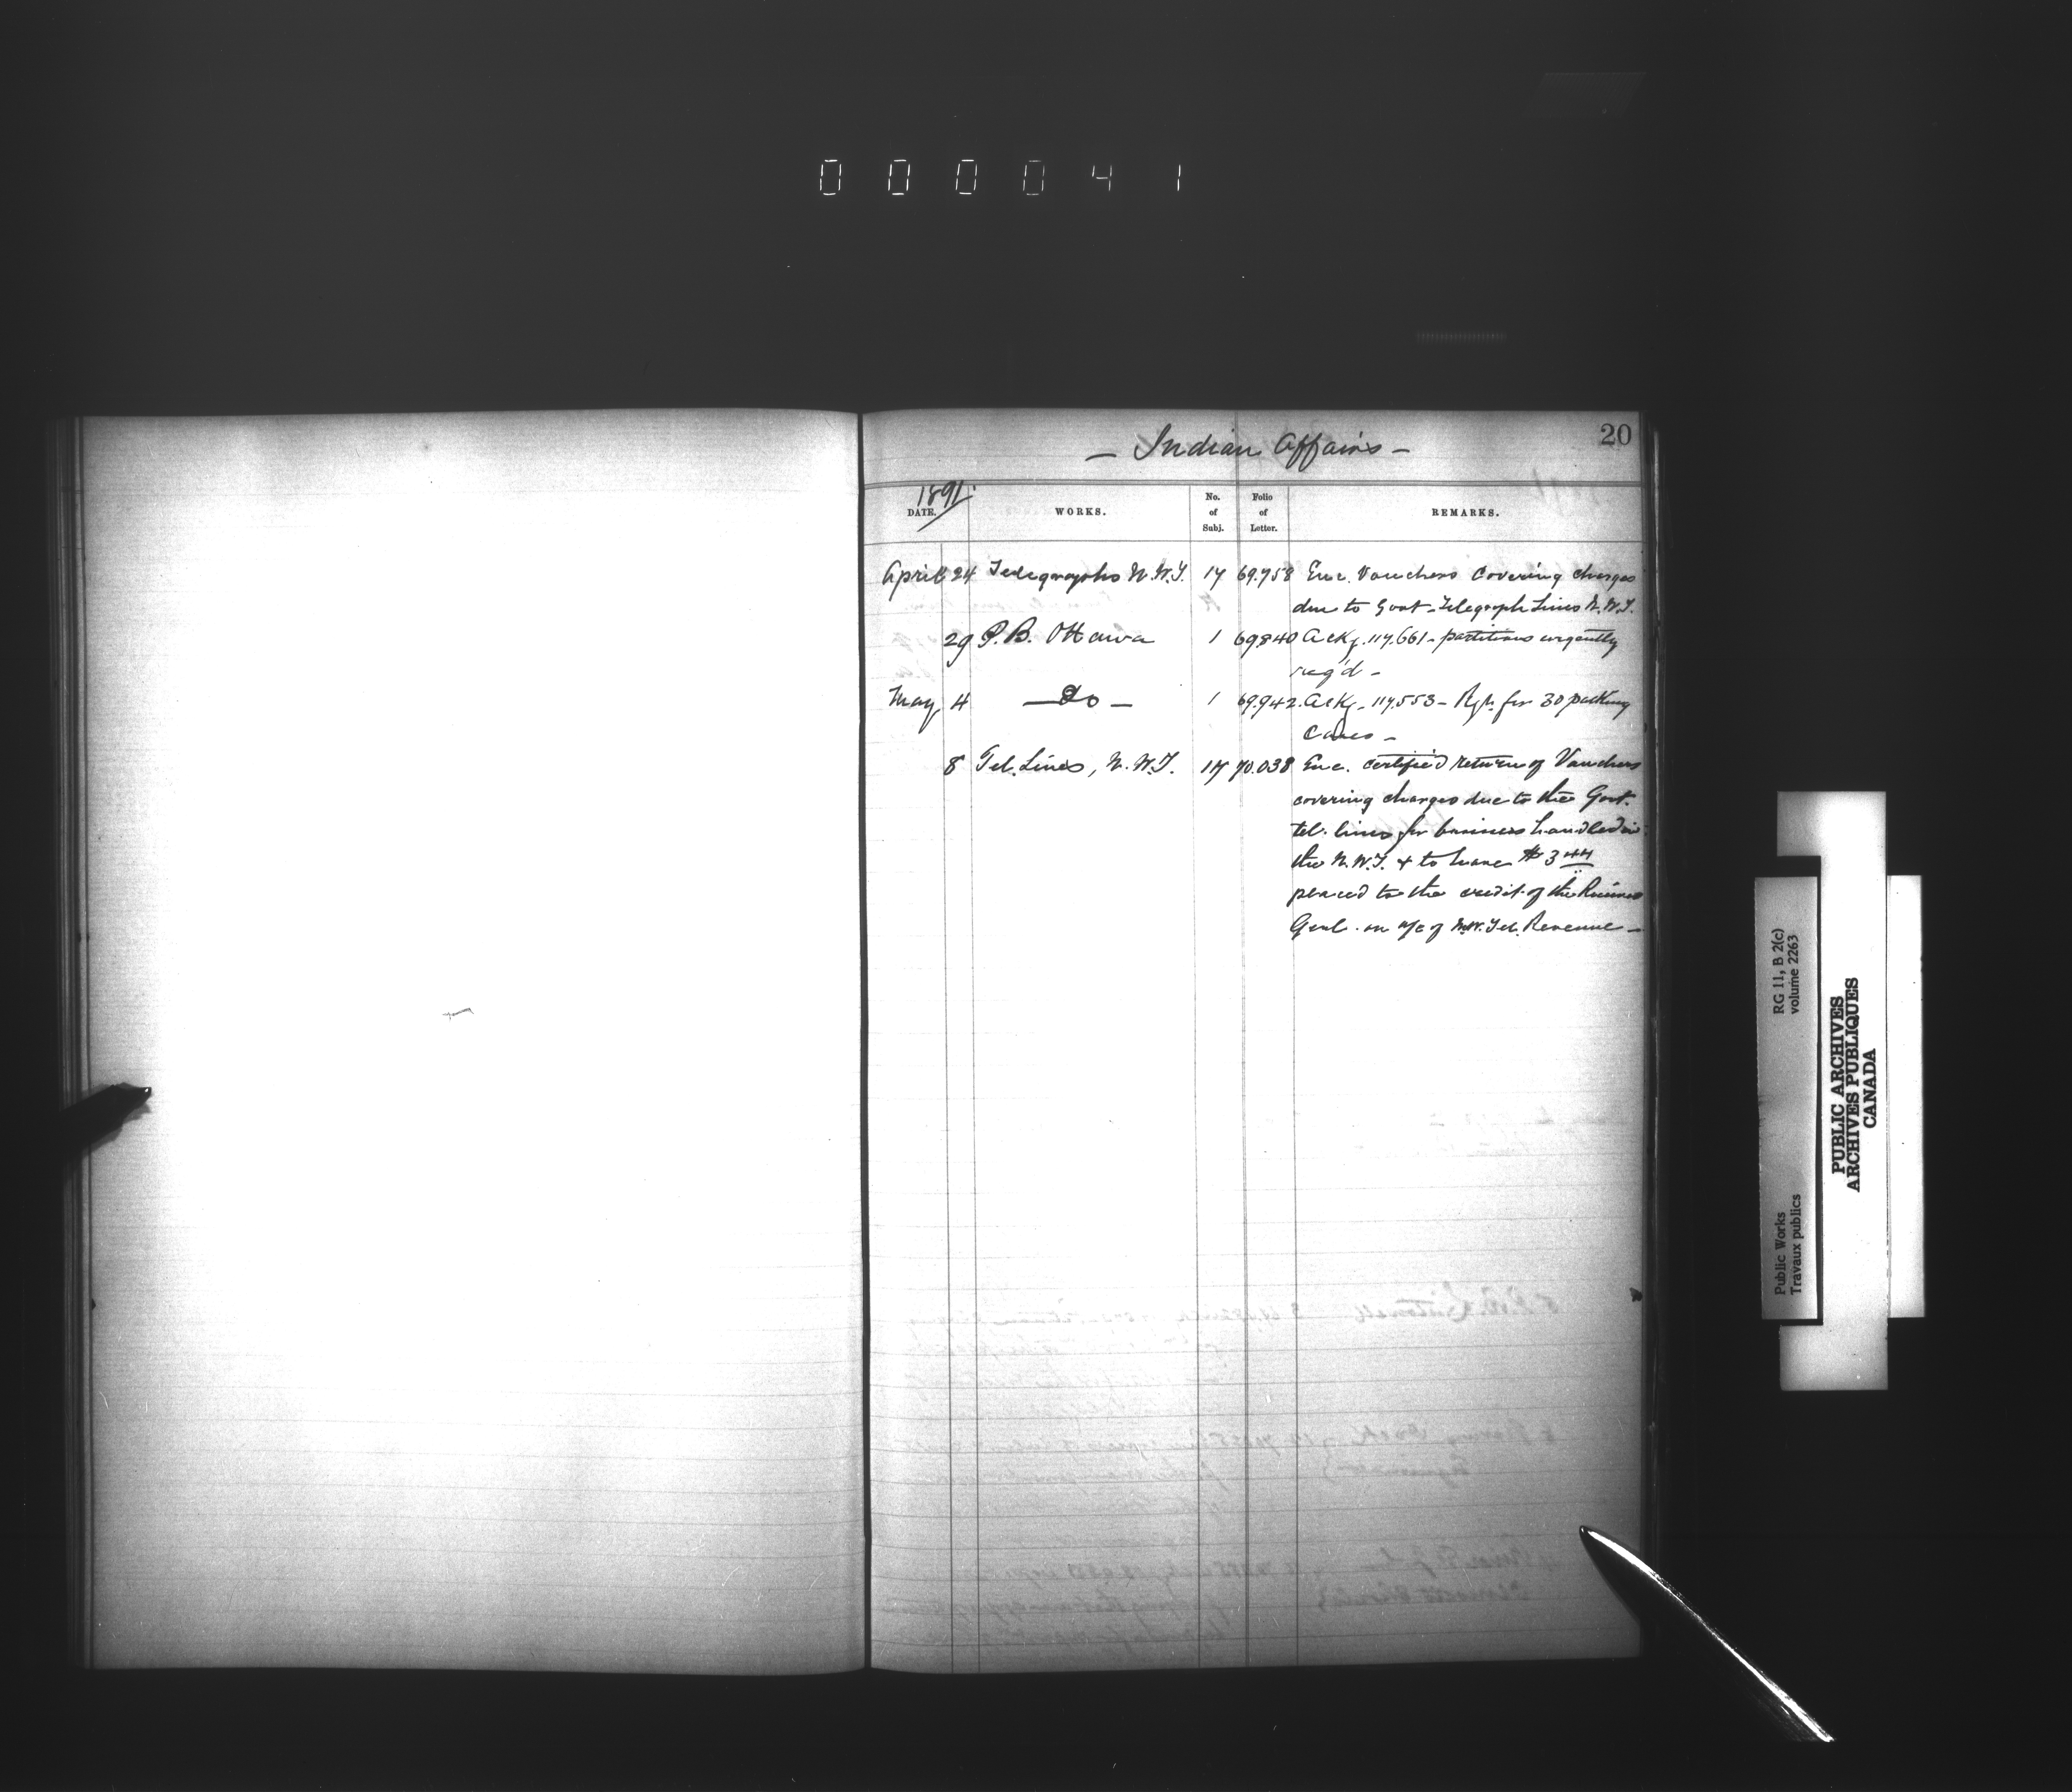 000041
20
— Indian Affairs —
1891.
DATE. WORKS. No. of Subj. Folio of Letter. REMARKS.
April 24 Telegraphs N.W.T. 17 69.758 Enc. Vouchers covering charges
due to Govt. Telegraph Lines N.W.T.
29 P.B. Ottawa 1 69.840 Ackg. 117.661 - partitions urgently
req'd -
May 4 — Do — 1 69.942. Ackg. 117.553 - for 30 packing
Cases -
8 Tel. Lines, N.W.T. 17 70.038 Enc. certified return of Vouchers
covering charges due to the Govt.
tel. lines for business handled in
the N.W.T. & to have $3 44
placed to the credit of the Receiver
Genl. on a/c of N.W. Tel. Revenue —
RG 11, B 2(c)
volume 2263
Public Works
Travaux publics
PUBLIC ARCHIVES
ARCHIVES PUBLIQUES
CANADA